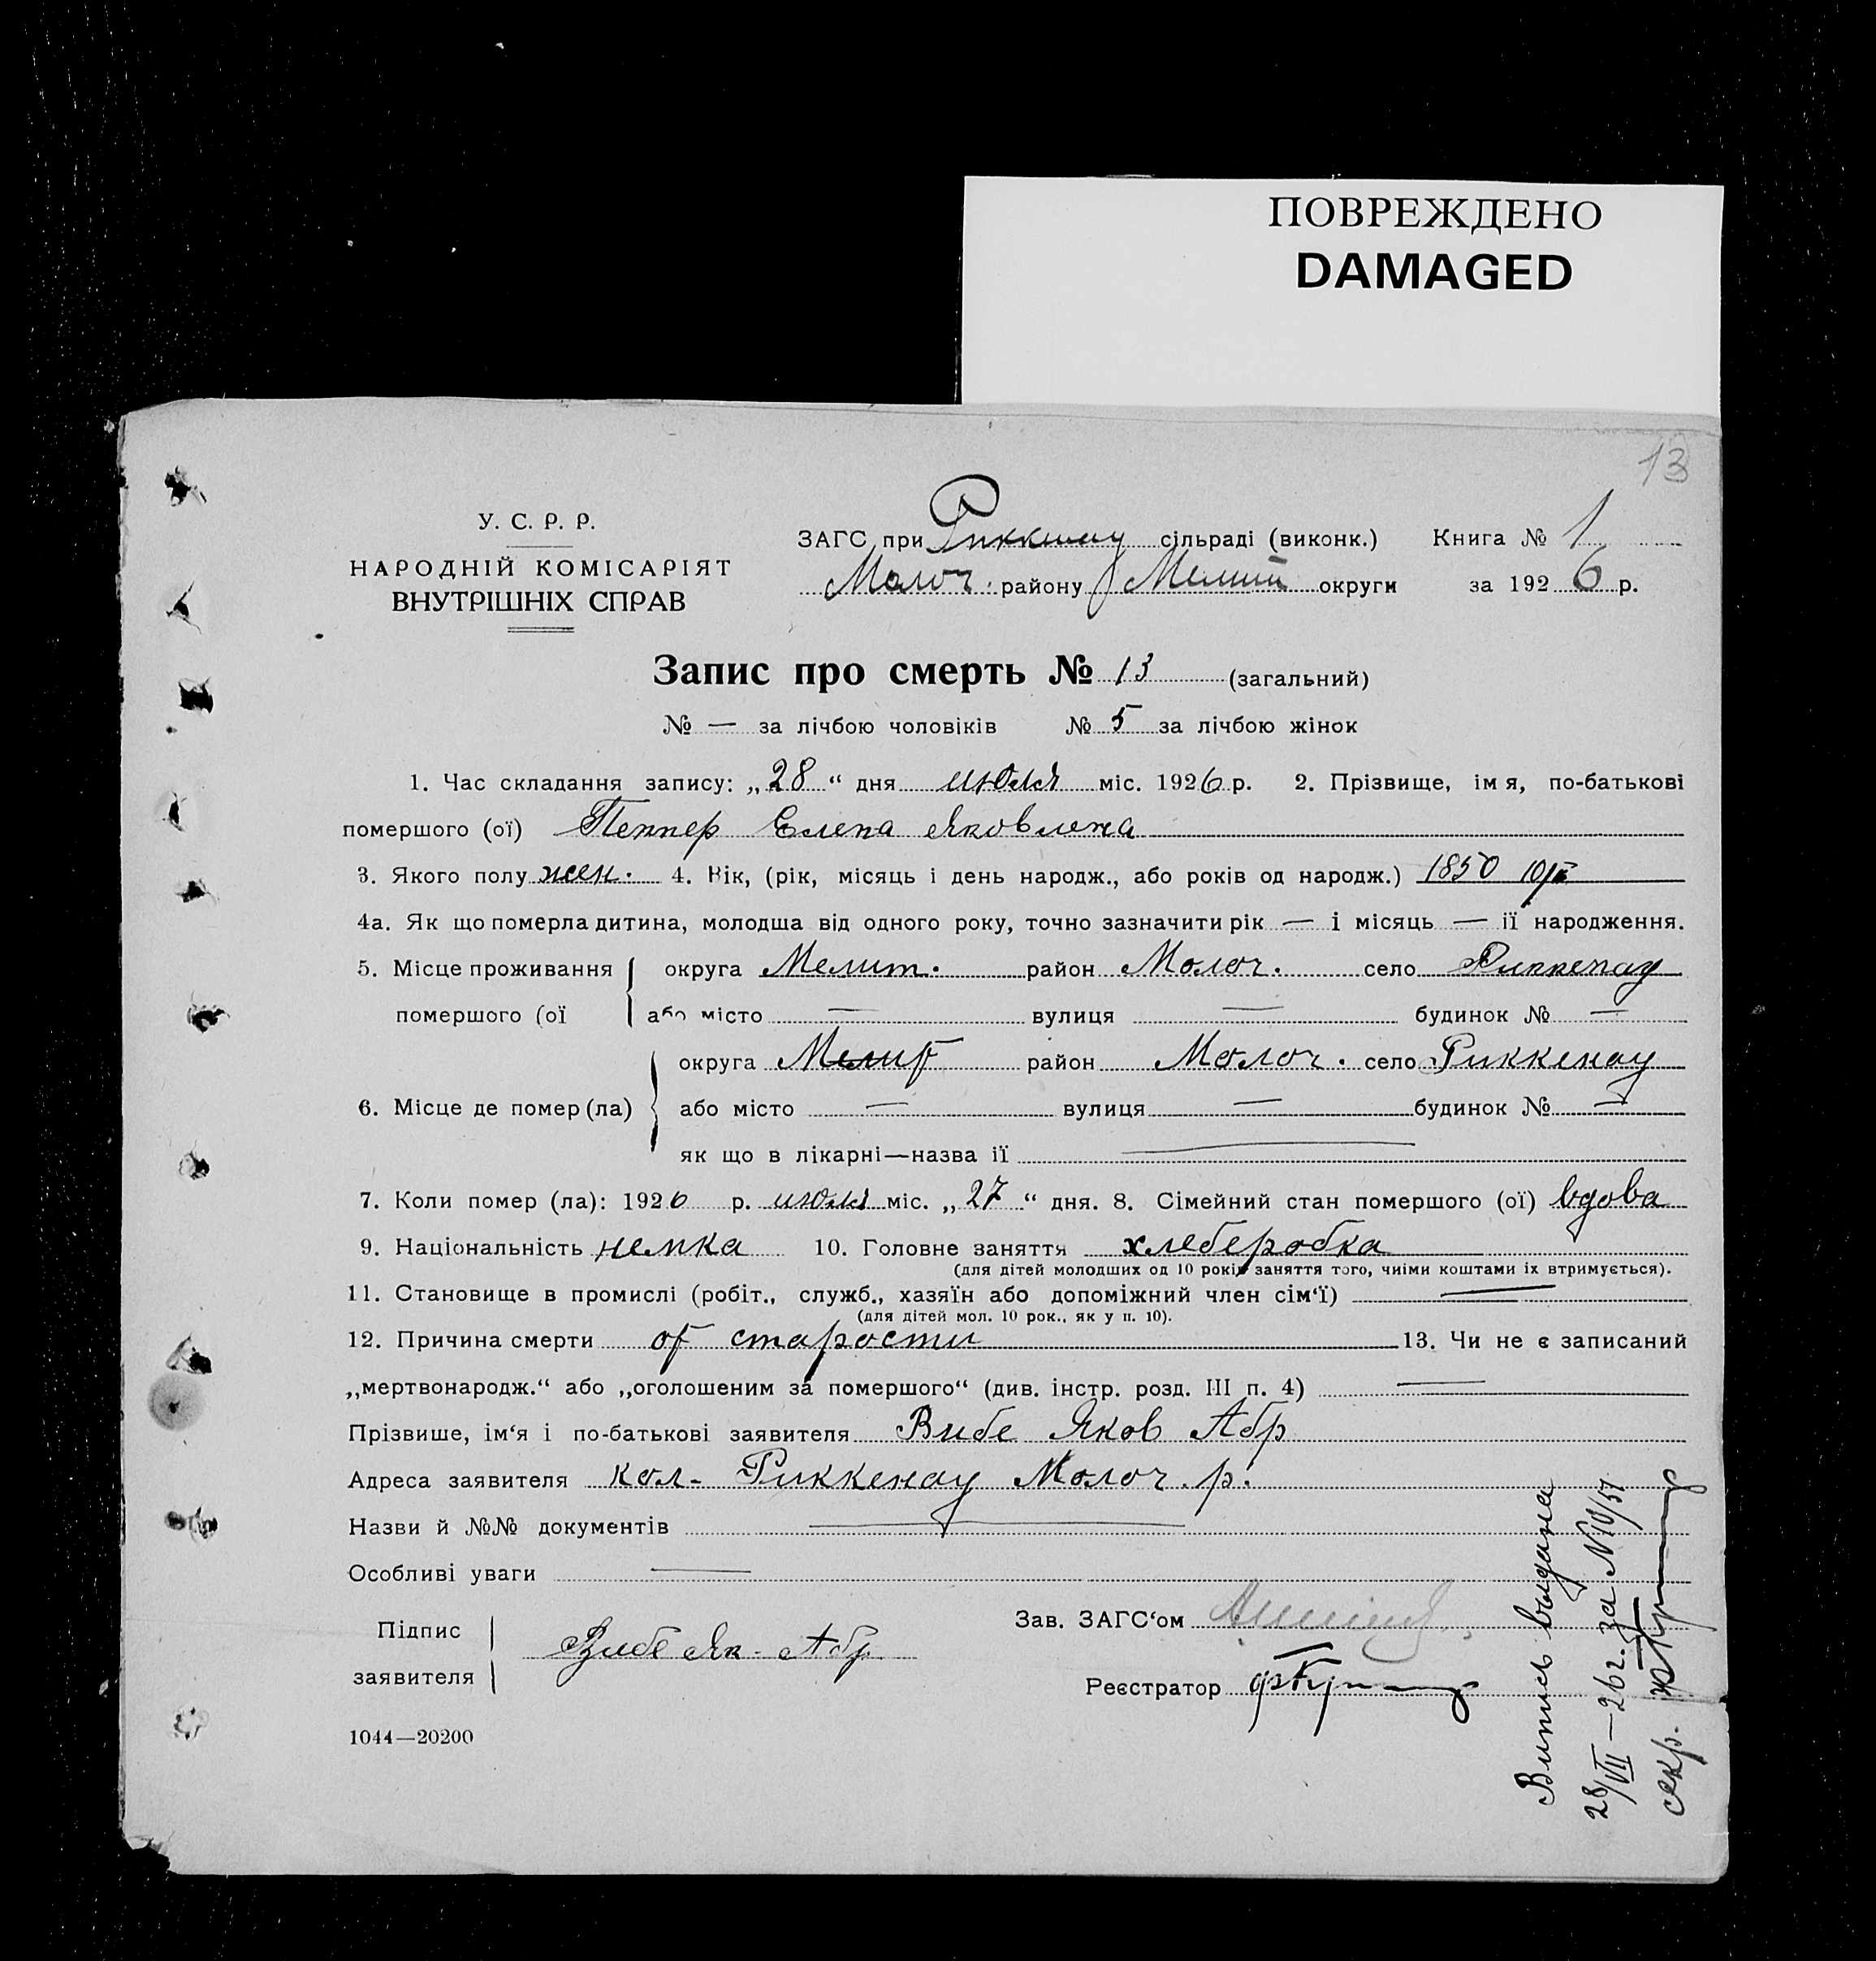 ПОВРЕЖДЕНО
DAMAGED
13
У. С. Р. Р.
НАРОДНІЙ КОМІСАРІЯТ
ВНУТРІШНІХ СПРАВ
ЗАГС при Риккенау сільраді (виконк.) Книга № 1
Молоч. району Мелит округи за 1926 р.
Запис про смерть № 13 (загальний)
№ — за лічбою чоловіків № 5 за лічбою жінок
1. Час складання запису: „28“ дня июля міс. 1926 р. 2. Прізвище, імя, по-батькові
помершого (ої) Пеннер Елена Яковлена
3. Якого полу жен. 4. Вік, (рік, місяць і день народж., або років од народж.) 1850
4а. Як що померла дитина, молодша від одного року, точно зазначити рік — і місяць — її народження.
5. Місце проживання округа Мелит. район Молоч. село Риккенау
помершого (ої або місто — вулиця — будинок № —
округа Мелит район Молоч. село Риккенау
6. Місце де помер (ла) або місто — вулиця — будинок № —
як що в лікарні—назва її —
7. Коли помер (ла): 1926 р. июля міс. „27“ дня. 8. Сімейний стан помершого (ої) вдова
9. Національність немка 10. Головне заняття хлеберобка
(для дітей молодших од 10 років заняття того, чиїми коштами їх втримується).
11. Становище в промислі (робіт., служб., хазяїн або допоміжний член сім‘ї) —
(для дітей мол. 10 рок., як у п. 10).
12. Причина смерти от старости 13. Чи не є записаний
„мертвонародж.“ або „оголошеним за помершого“ (див. інстр. розд. III п. 4) —
Прізвише, ім‘я і по-батькові заявителя Вибе Яков Абр
Адреса заявителя кол- Риккенау Молоч. р.
Назви й №№ документів —
Особливі уваги —
Підпис
заявителя Вибе Як- Абр
Зав. ЗАГС‘ом
Реєстратор
1044—20200
Випись выдана
28/VII—26 г. за N 10/57
секр.